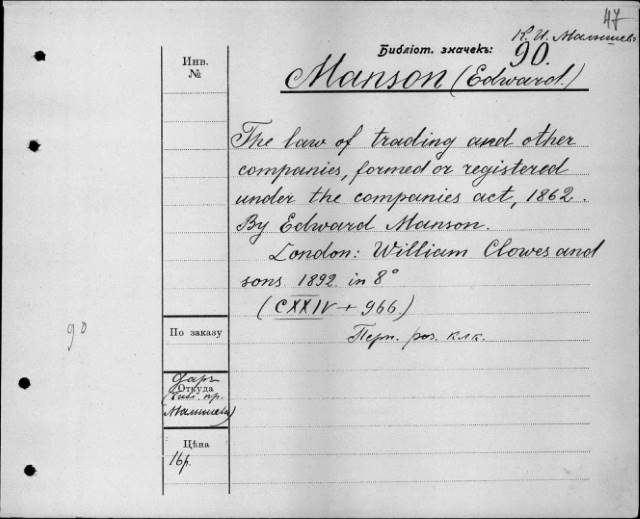 47
К. И. Малышевъ
Библіот. значекъ: 90.
Инв.
№
Manson (Edward.)
The law of trading and other
companies, formed or registered
under the companies act, 1862.
By Edward Manson.
London: William Clowes and
sons 1892 in 8°
(CXXIV + 966.)
Перп. роз. клк.
90
По заказу
Даръ
Откуда
(Библ. пр.
Малышева)
Цѣна
16 р.